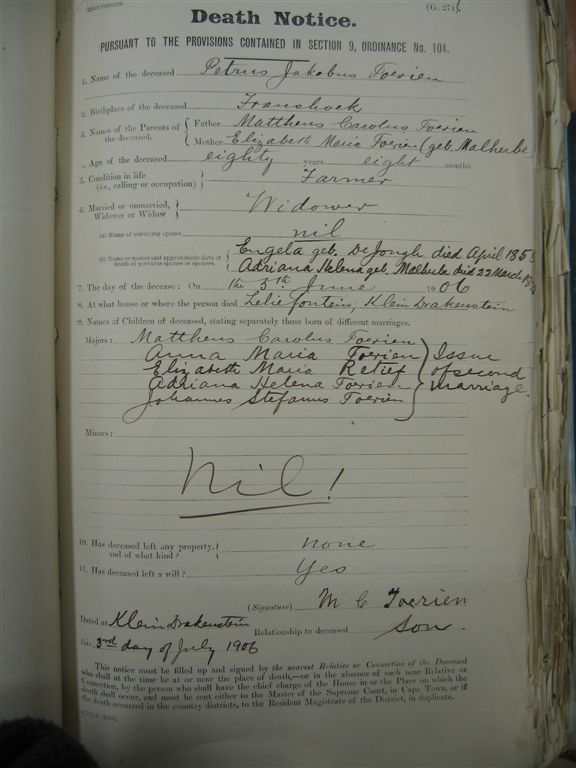 (G. 271).
Death Notice.
PURSUANT TO THE PROVISIONS CONTAINED IN SECTION 9, ORDINANCE No. 104.
1. Name of the deceased Petrus Jakobus Toerien
2. Birthplace of the deceased Franshoek
3. Names of the Parents of the deceased. Father Mattheus Carolus Toerien
Mother Elizabeth Maria Toerien (geb. Malherbe)
Age of the deceased eighty years eight months
5. Condition in life (i.e., calling or occupation) Farmer
6. Married or unmarried, Widower or Widow Widower
(a) Name of surviving spouse nil
(b) Name or names and approximate date of death of previous spouse or spouses. Engela geb. De Jongh died April 185
Adriana Helena geb. Malherbe died 22 March
7. The day of the decease: On the 5th June 1906
8. At what house or where the person died Leliefontein, Klein Drakenstein
9. Names of Children of deceased, stating separately those born of different marriages.
Majors: Mattheus Carolus Toerien
Anna Maria Toerien
Elizabeth Maria Retief
Adriana Helena Toerien
Johannes Stefanus Toerien
Issue of second marriage.
Minors:
Nil!
10. Has deceased left any property, and of what kind? none
11. Has deceased left a will? Yes
(Signature) M C Toerien
Dated at Klein Drakenstein
Relationship to deceased son
this 3rd day of July 1906
This notice must be filled up and signed by the nearest Relative or Connection of the Deceased
who shall at the time be at or near the place of death,—or in the absence of such near Relative or
Connection, by the person who shall have the chief charge of the House in or the Place on which the
death shall occur, and must be sent either to the Master of the Supreme Court, in Cape Town, or if
the death occurred in the country districts, to the Resident Magistrate of the District, in duplicate.